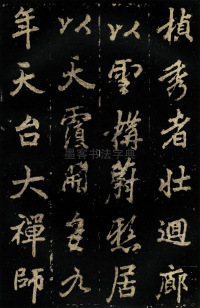 楨秀者壯迴廊
以雲構蔚懸居
以天霞開皇九
年天台大禪師
墨客书法字典